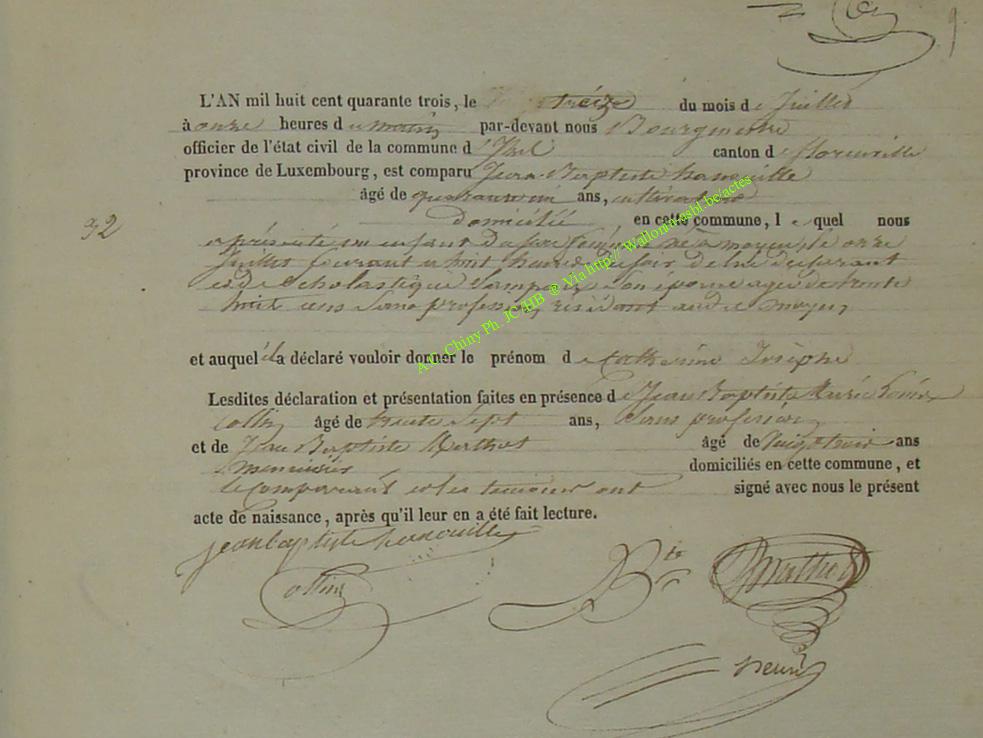 9
L'AN mil huit cent quarante trois, le treize du mois de Juillet
à onze heures du matin par-devant nous Bourgmestre
officier de l'état civil de la commune d'Izel canton de florenville
province de Luxembourg, est comparu Jean-Baptiste hanouille
âgé de quarante un ans, cultivateur
domicilié en cette commune, lequel nous
92
a présenté un enfant du sexe féminin né à moyen, le onze
Juillet courant à huit heures du soir de lui déclarant
et de Scholastique son épouse agée de trente
huit ans sans profession, résidant audit moyen
et auquel il a déclaré vouloir donner le prénom de Catherine Josephe
Lesdites déclaration et présentation faites en présence de Jean Baptiste
Collin âgé de trente sept ans, sans profession
et de Jean Baptiste Mathot âgé de vingt trois ans
menuisier domiciliés en cette commune, et
le Comparant et les temoins ont signé avec nous le présent
acte de naissance, après qu'il leur en a été fait lecture.
jean baptiste hanouille
Collin
Bte Mathot
henri
Ath Chiny Ph. JC/HB @ Via http://Wallonwasbl.be/actes